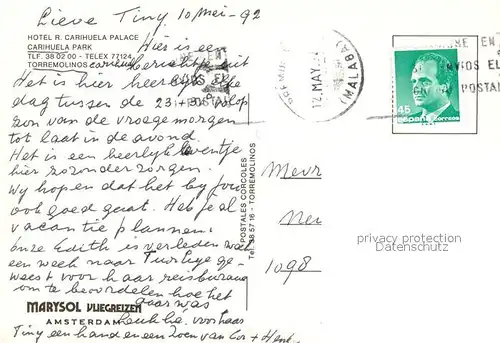 Lieve Tiny 10 mei - 92
HOTEL R. CARIHUELA PALACE
CARIHUELA PARK
TLF. 38 02 00 - TELEX 77124
TORREMOLINOS
Hier is een
berichtje uit
Het is hier heerlijk elke
dag tussen de 23 + 30° volop
zon van de vroege morgen
tot laat in de avond.
Het is een heerlijk leventje
hier zonder zorgen.
Wij hopen dat het bij jou
ook goed gaat. Heb je al
vacantie plannen.
Onze Edith is verleden week
een week naar Turkije ge-
weest voor haar reisbureau
om te beoordelen hoe het
daar was
MARYSOL VLIEGREIZEN
AMSTERDAM
Leuk hè, voor haar
Tiny een hand en een zoen van Cor + Henk
POSTALES CORCOLES
Tel. 38 57 16 - TORREMOLINOS
12 MAY. 92
(MALAGA)
ENVIOS EL
POSTAL
45
ESPAÑA Correos
Mevr
1098
privacy protection
Datenschutz